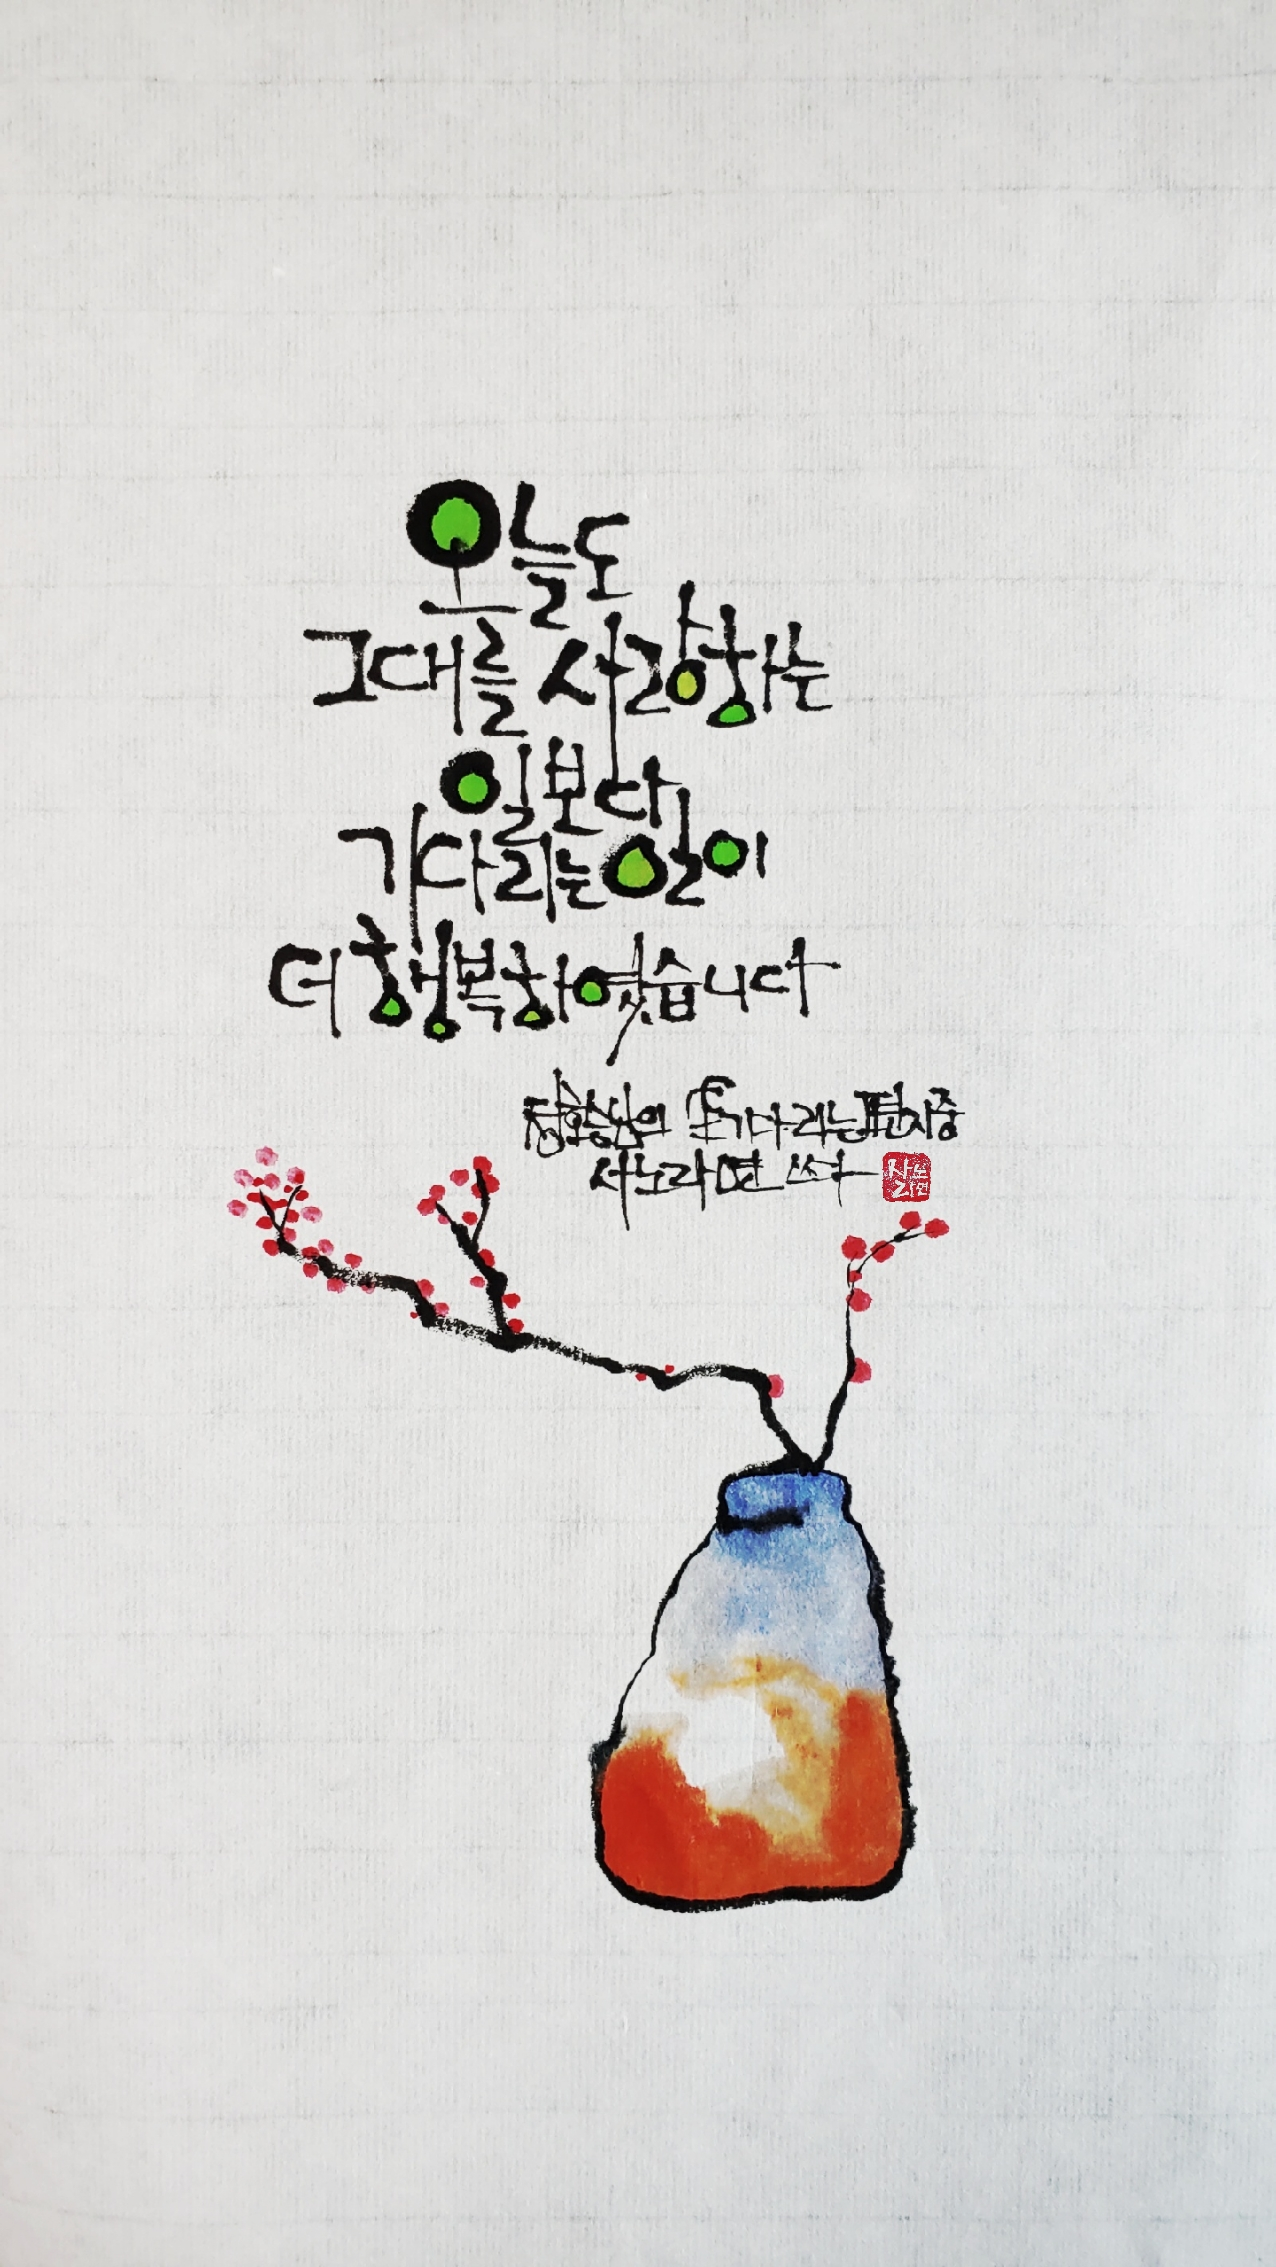 오늘도
그대를 사랑하는
일보다
기다리는 일이
더 행복하였습니다
정호승님의 또 기다리는 편지 중
서노라면 쓰다